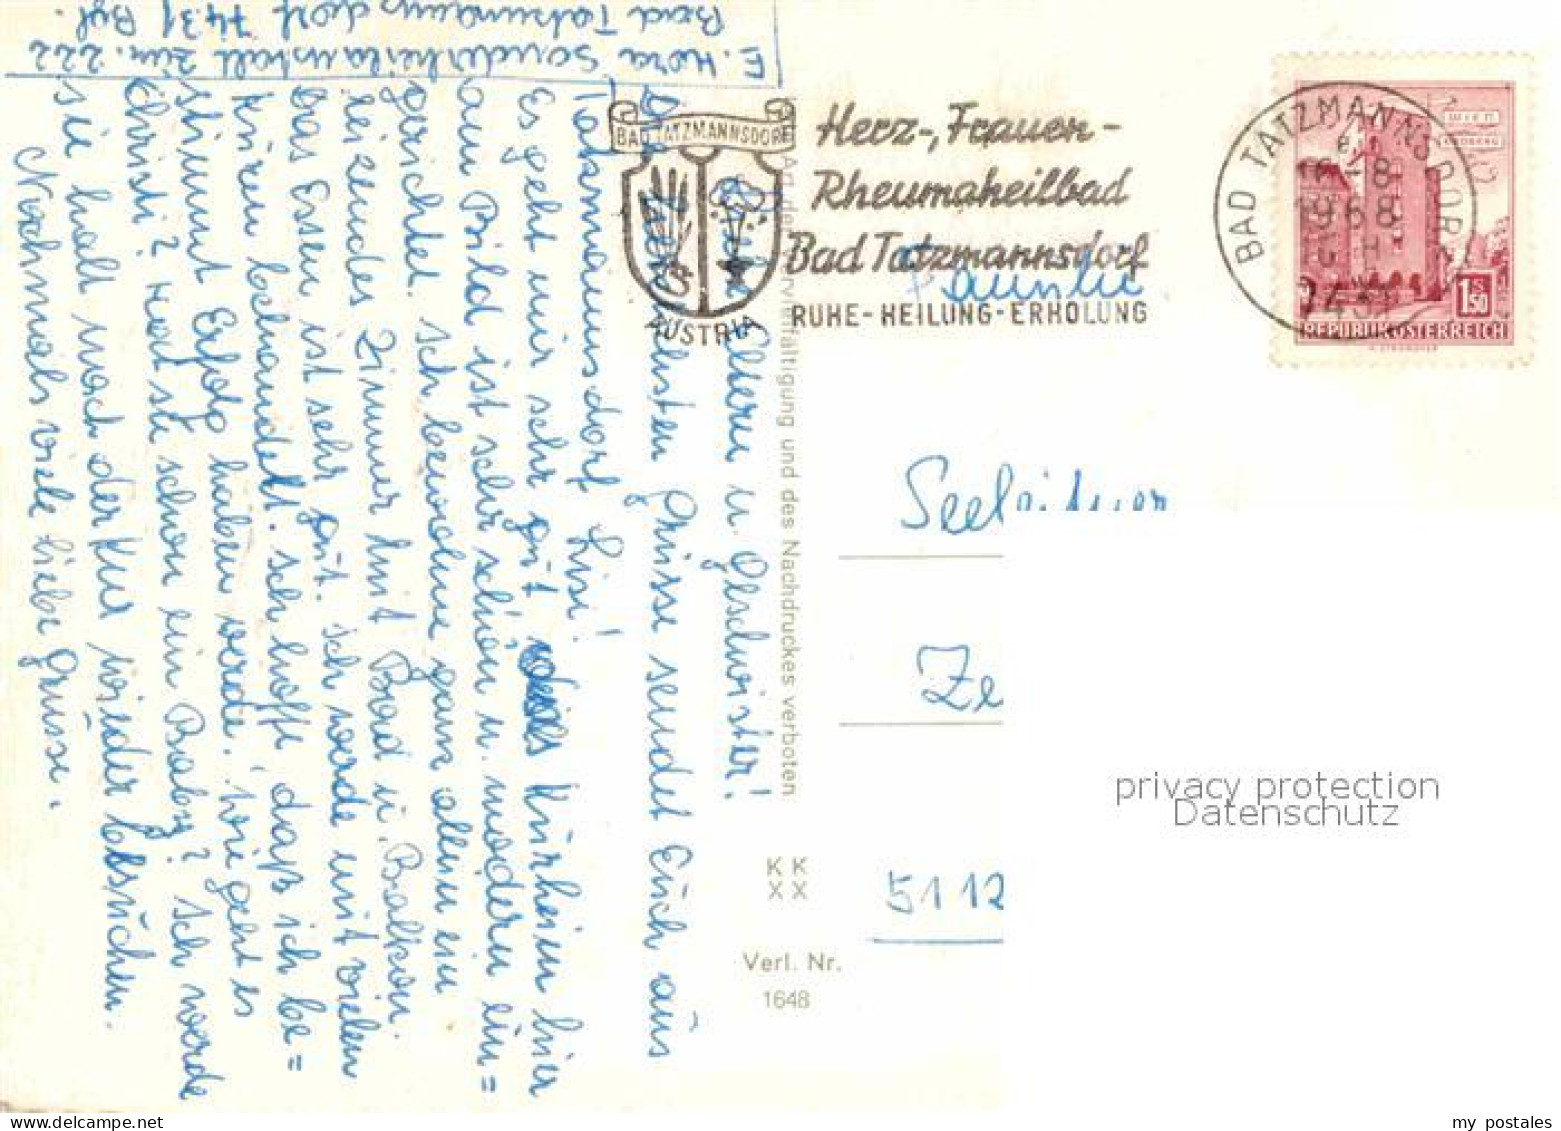 E. Hora Sonderheilanstalt Zim. 222
Bad Tatzmannsdorf 7431 Bgl.
BAD TATZMANNSDORF
AUSTRIA
Herz-, Frauen-
Rheumaheilbad
Bad Tatzmannsdorf
RUHE-HEILUNG-ERHOLUNG
BAD TATZMANNSDORF
16.-8
1968
7431
1.50
REPUBLIK ÖSTERREICH
Familie
Seeleitner
Ze
5112
Eltern u. Geschwister!
Die herzlichsten Grüsse sendet Euch aus
Tatzmannsdorf Lisi!
Es geht mir sehr gut, Kurheim hier
am Bild ist sehr schön u. modern ein=
gerichtet. Ich bewohne ganz allein ein
reizendes Zimmer mit Bad u. Balkon.
Das Essen ist sehr gut. Ich werde mit vielen
Kuren behandelt. Ich hoffe, daß ich be=
stimmt Erfolg haben werde. Wie geht es
Christi? Hat sie schon ein Baby? Ich werde
sie halt nach der Kur wieder besuchen.
Nochmals viele liebe Grüsse.
vervielfältigung und des Nachdruckes verboten
KK
XX
Verl. Nr.
1648
privacy protection
Datenschutz
my postales